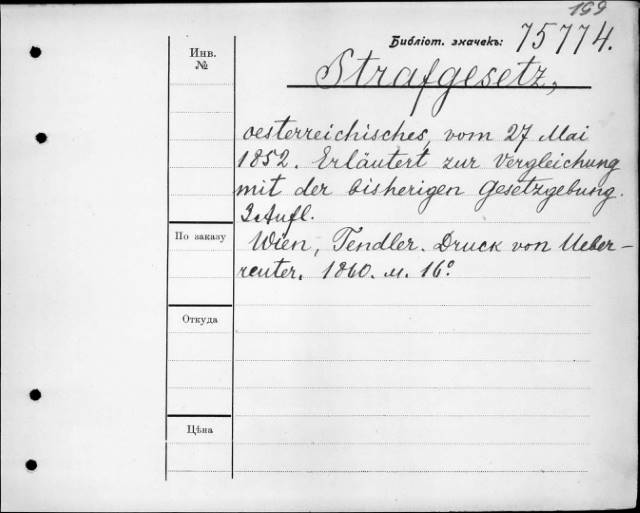 199
Библіот. значекъ: 75774.
Инв.
№
Strafgesetz,
oesterreichisches, vom 27 Mai
1852. Erläutert zur Vergleichung
mit der bisherigen Gesetzgebung.
3 Aufl.
По заказу
Wien, Tendler. Druck von Ueber-
reuter. 1860. м. 16°
Откуда
Цѣна